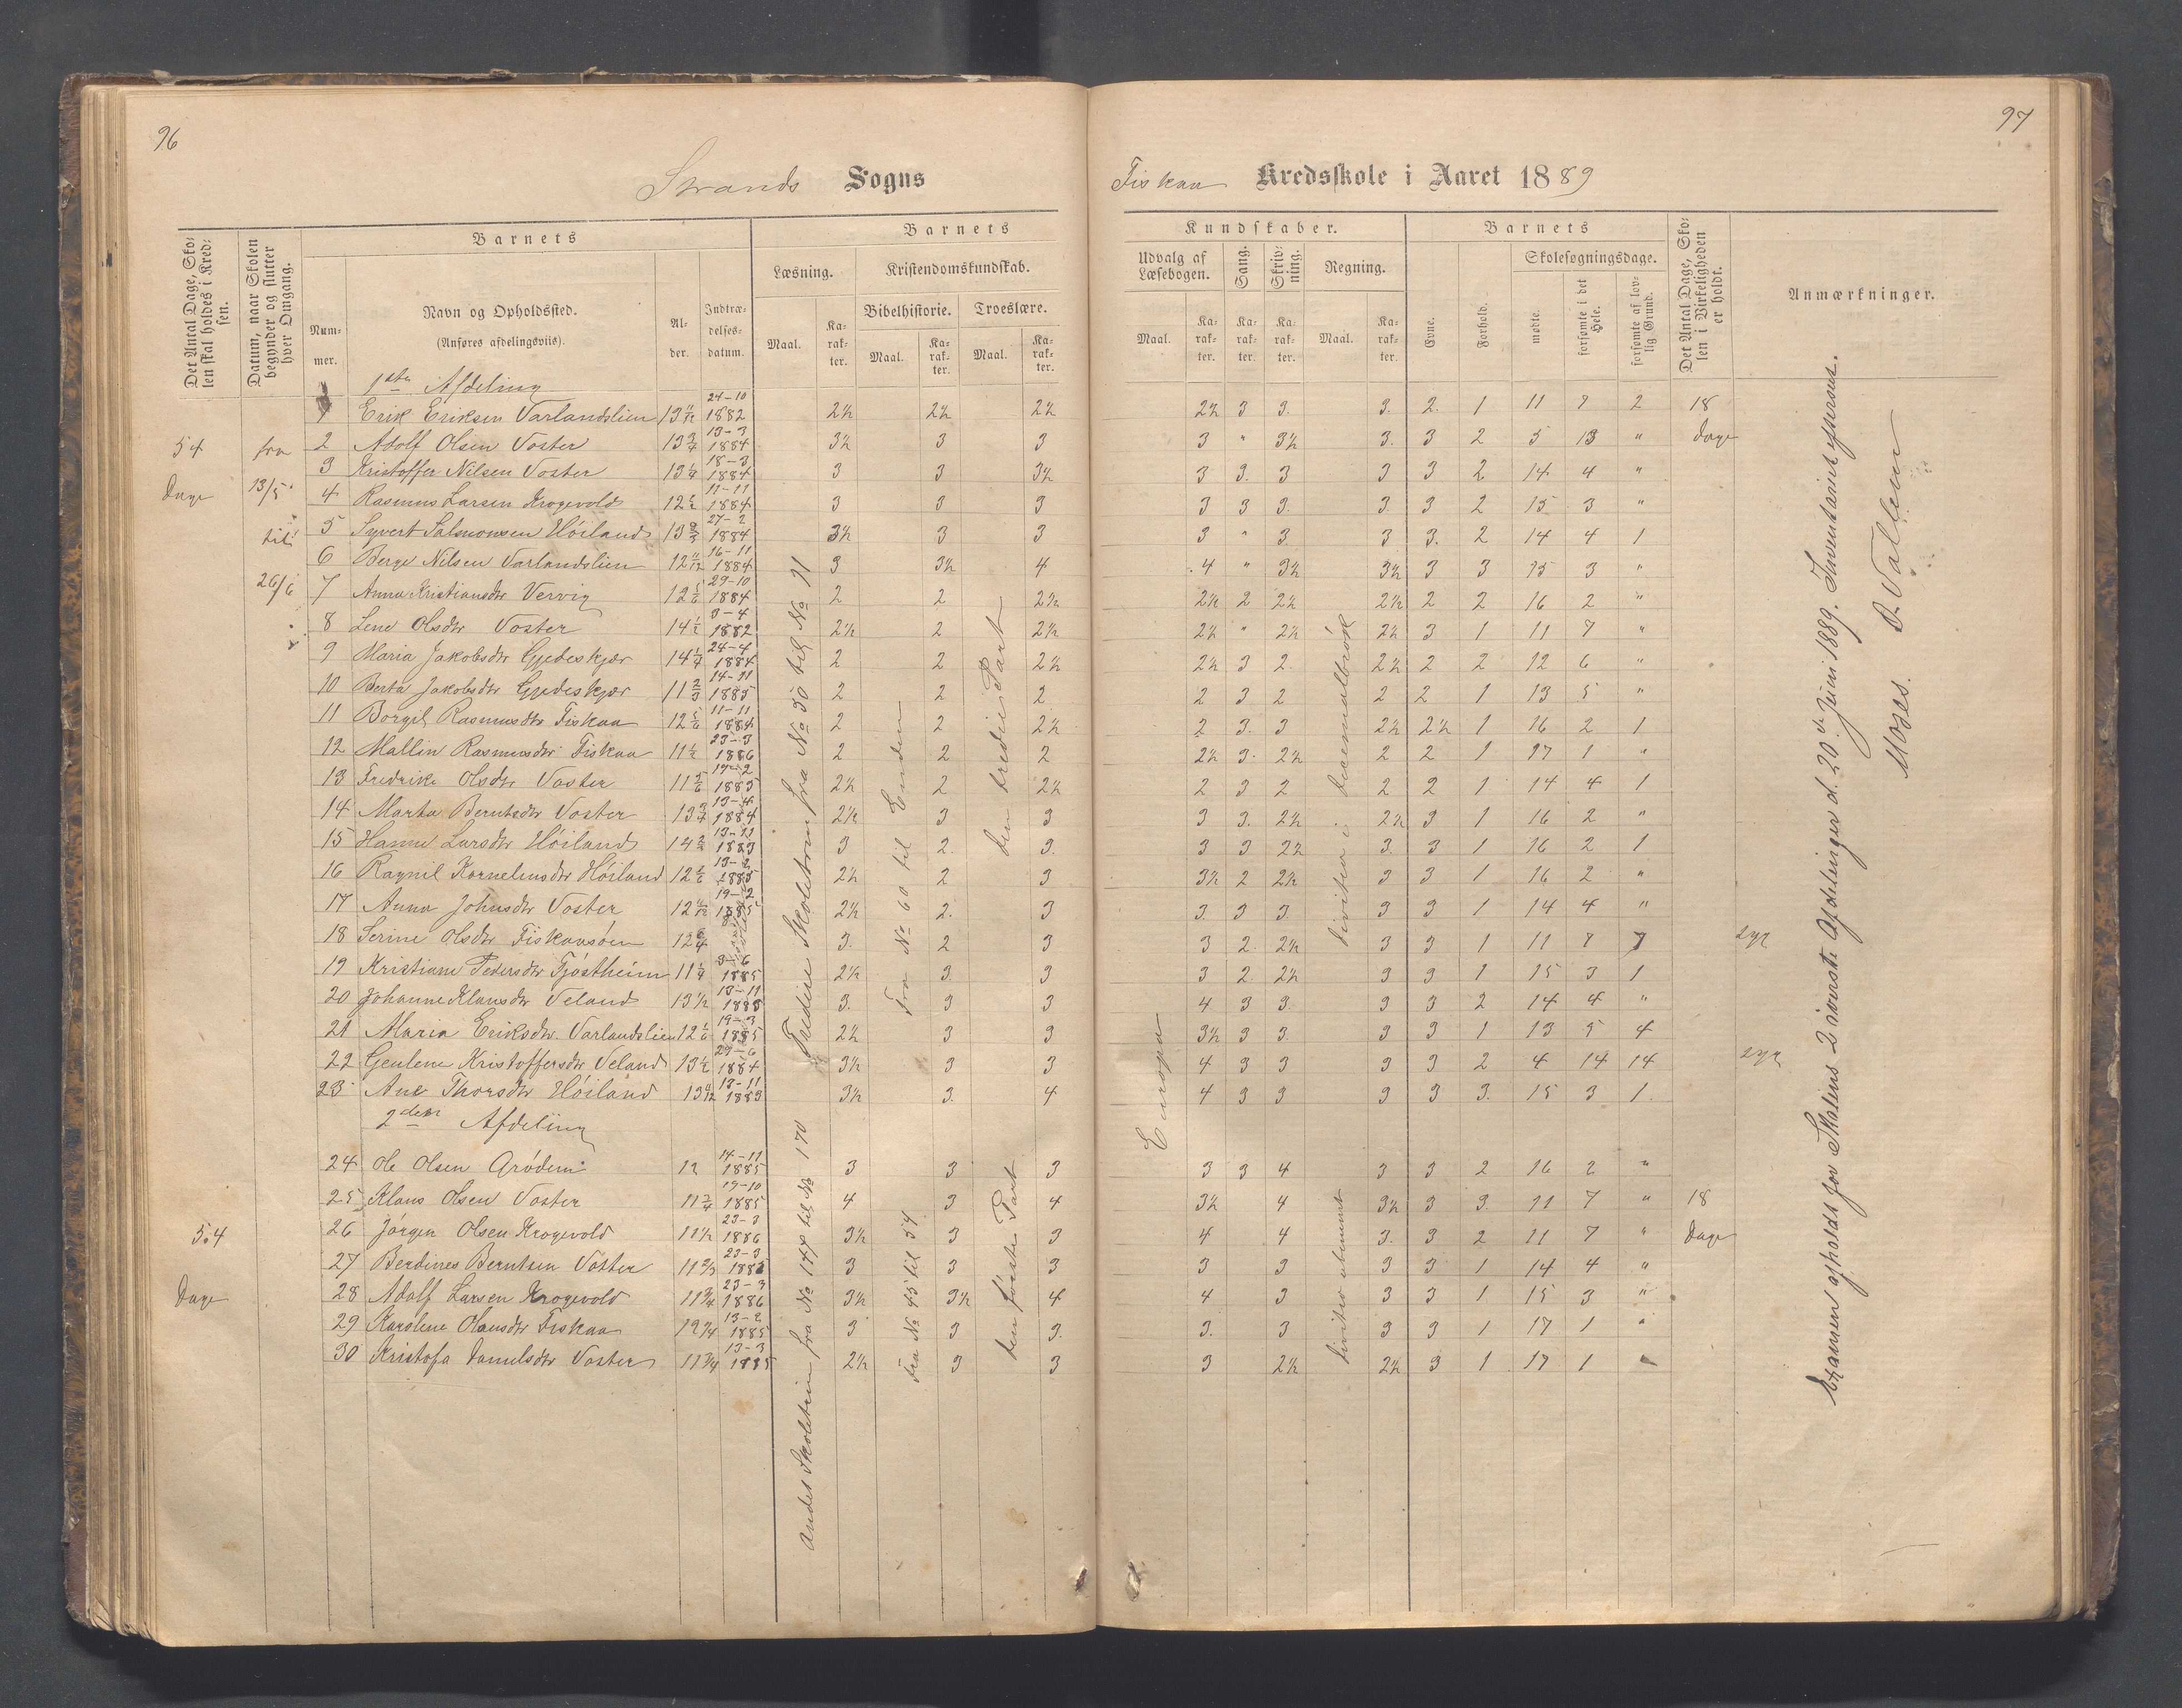 96
97
Strands Sogns
Fiskaa Kredsskole i Aaret 1889
Det Antal Dage, Skolen skal holdes i Kredsen.
Datum, naar Skolen begynder og slutter hver Omgang.
Barnets
Nummer.
Navn og Opholdssted.
(Anføres afdelingsviis).
Alder.
Indtrædelsesdatum.
Barnets
Læsning.
Kristendomskundskab.
Bibelhistorie.
Troeslære.
Maal.
Karakter.
Maal.
Karakter.
Maal.
Karakter.
Kundskaber.
Udvalg af Læsebogen.
Sang.
Skrivning.
Regning.
Maal.
Karakter.
Karakter.
Karakter.
Maal.
Karakter.
Barnets
Evne.
Forhold.
Skolesøgningsdage.
mødte.
forsømte i det Hele.
forsømte af lovlig Grund.
Det Antal Dage, Skolen i Virkeligheden er holdt.
Anmærkninger.
1ste Afdeling
1 Erik Eriksen Varlandslien 13 11/12 24-10 1882 2½ 2½ 2½ 2½ 3 3. 3. 2. 1 11 7 2 18
54 fra 2 Adolf Olsen Voster 13 3/4 13-3 1884 3½ 3 3 3 " 3½ 3. 3 2 5 13 " Dage
3 Kristoffer Nilsen Voster 13 1/4 18-3 1884 3 3 3½ 3 3. 3 3 3 2 14 4 "
Dage 13/5 4 Rasmus Larsen Krogevold 12 1/2 11-11 1884 3 3 3 3 3 3. 3. 3 2 15 3 "
til 5 Syvert Salmonsen Høiland 13 2/3 27-2 1884 3½ 3 3 3 " 3 3 3. 2 14 4 1
6 Berge Nilsen Varlandslien 12 11/12 16-11 1884 3 3½ 4 4 " 3½ 3½ 3 3 15 3 "
26/6 7 Anna Kristiansdtr Vervig 12 5/6 29-10 1884 2 2 2½ 2½ 2 2½ 2½ 2 2 16 2 "
8 Lene Olsdtr Voster 14 1/2 3-4 1882 2½ 2 2½ 2½ " 2½ 2½ 3 1 11 7 "
9 Maria Jakobsdtr Gjedeskjær 14 1/4 24-4 1884 2 2 2½ 2½ 3 2. 2½ 2 2 12 6 "
10 Berta Jakobsdtr Gjedeskjær 11 2/3 14-11 1885 2 2 2. 2 3 2 2 2 1 13 5 "
11 Borgil Rasmusdtr Fiskaa 12 5/6 11-11 1884 2 2 2½ 2 3. 3 2½ 2½ 1 16 2 1
12 Mallin Rasmusdtr Fiskaa 11 1/2 23-3 1886 2 2 2 2½ 3. 2½ 2 2 1 17 1 "
13 Fredrike Olsdtr Voster 11 5/6 17-2 1885 2½ 2 2½ 2 3 2 2 2 1 14 4 1
14 Marta Berntsdtr Voster 13 3/4 13-4 1884 2½ 3 3 3 3. 2½ 2½ 3 1 16 2 "
15 Hanne Larsdtr Høiland 14 2/3 13-11 1883 3 2. 3. 3 3 2½ 3. 3 1 16 2 1
16 Ragnil Kornelinsdtr Høiland 12 1/6 13-2 1885 2½ 2 3 3½ 2 2½ 3 3 1 16 2 "
17 Anna Johnsdtr Voster 12 11/12 19-2 1885 2½ 2. 3 3. 3 3. 3 3 1 14 4 "
18 Serine Olsdtr Fiskaasøen 12 3. 2 3 3 2. 2½ 3 3 1 11 7 7 syg
19 Kristiane Pedersdtr Tjøstheim 11 1/4 3-6 1885 2½ 3. 3 3 2. 2½ 3 3 1 15 3 1
20 Johanne Klausdtr Veland 13 ½ 13-11 1883 3. 3 3 4 3 3. 3 3 2 14 4 "
21 Maria Eriksdtr. Varlandslien 12 1/6 19-3 1885 2½ 3 3 3½ 3 3. 3 3 1 13 5 4
22 Geulene Kristoffersdtr Veland 13 1/2 29-6 1884 3½ 3 3 4 3 3 3 3 2 4 14 14 syg
23 Ane Thorsdtr Høiland 13 11/12 13-11 1883 3½ 3. 4 4 3 3 3 3 3. 15 3 1.
2den Afdeling
24 Ole Olsen Grødem 12 14-11 1885 3 3 3 3 3 4 3 3 2 16 2 "
25 Klaus Olsen Voster 11 3/4 19-10 1885 4 3 4 3½ 4 3½ 3 3. 11 7 " 18
54 26 Jørgen Olsen Krogevold 11 ½ 23-3 1886 3½ 3 3 4 4 3. 3 2 11 7 " Dage
27 Berdines Berntsen Voster 11 2/3 23-3 1885 3 3 3 3 3 3 3 1 14 4 "
Dage 28 Adolf Larsen Krogevold 11 3/4 23-3 1886 3½ 3½ 4 4 3 3 3 1 15 3 "
29 Karolene Olausdtr Fiskaa 12 1/4 13-2 1885 3 3 3. 3. 3 3 3 1 17 1 "
30 Kristofa Danielsdtr Voster 11 3/4 13-3 1885 2½ 3 3 3 2½ 2½ 3 1 17 1 "
Tredie Skoletrin fra No 50 til No 71
Fra No 60 til Enden
den tredie Part
Europa
dividere i Decimalbrøk
Andet Skoletrin fra No 147 til No 170
Fra No 45 til 54
den første Part
divider ubenevnt
Examen afholdt for Skolens 2 øverste Afdelinger d. 20de Juni 1889. Inventariet efterseet.
Moses. D. Vallem